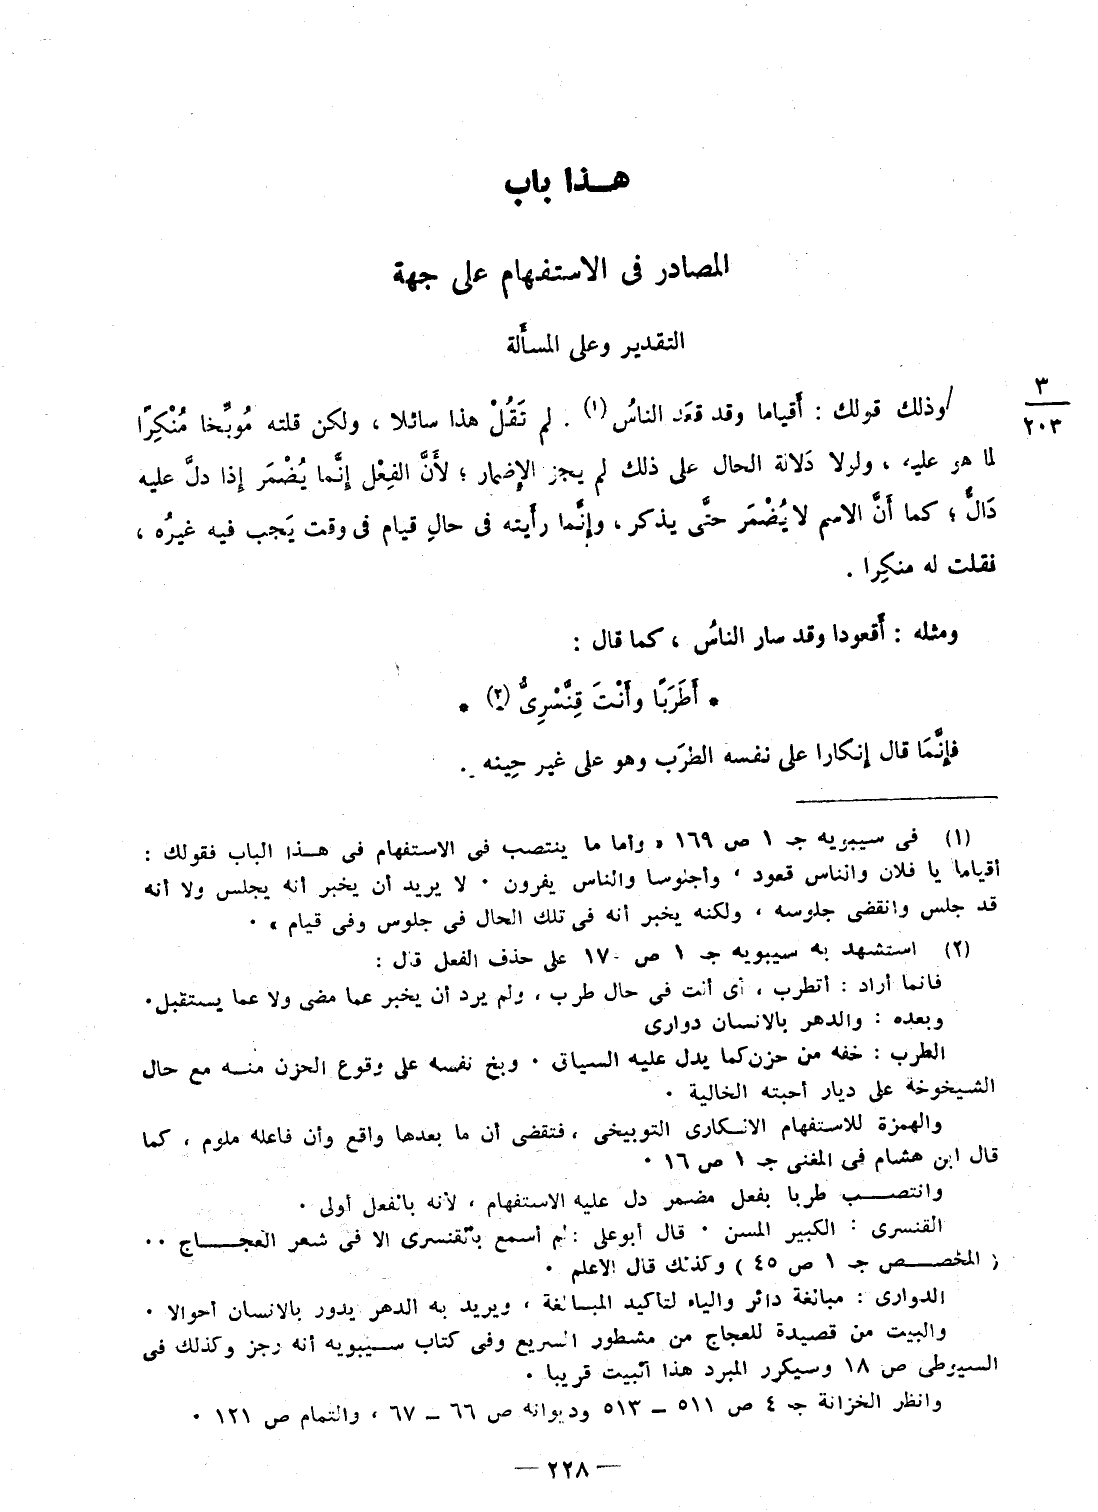 هـذا باب
المصادر فى الاستفهام على جهة
التقدير وعلى المسألة
/وذلك قولك : أَقياما وقد قعَد الناسُ (١) . لم تَقُلْ هذا سائلا ، ولكن قلته مُوبِّخا مُنْكِرًا
٣
٢٠٣
لما هو عليه ، ولولا دَلالة الحال على ذلك لم يجز الإِضمار ؛ لأَنَّ الفِعْل إِنَّما يُضْمَر إِذا دلَّ عليه
دَالٌّ ؛ كما أَنَّ الاسم لا يُضْمَر حتَّى يذكر ، وإِنَّما رأَيته فى حالِ قيام فى وقت يَجب فيه غيرُه ،
فقلت له منكِرا .
ومثله : أَقعودا وقد سار الناسُ ، كما قال :
* أَطَرَبًا وأَنْتَ قِنَّسْرِىُّ (٢) *
فإِنَّمَا قال إِنكارا على نفسه الطرَب وهو على غير حِينه .
(١) فى سيبويه جـ ١ ص ١٦٩ « وأما ما ينتصب فى الاستفهام فى هـذا الباب فقولك :
أقياما يا فلان والناس قعود ، وأجلوسا والناس يفرون . لا يريد أن يخبر أنه يجلس ولا أنه
قد جلس وانقضى جلوسه ، ولكنه يخبر أنه فى تلك الحال فى جلوس وفى قيام » .
(٢) استشهد به سيبويه جـ ١ ص ١٧٠ على حذف الفعل قال :
فانما أراد : أتطرب ، أى أنت فى حال طرب ، ولم يرد أن يخبر عما مضى ولا عما يستقبل .
وبعده : والدهر بالانسان دوارى
الطرب : خفه من حزن كما يدل عليه السياق . وبخ نفسه على وقوع الحزن منـه مع حال
الشيخوخة على ديار أحبته الخالية .
والهمزة للاستفهام الانـكارى التوبيخى ، فتقضى أن ما بعدها واقع وأن فاعله ملوم ، كما
قال ابن هشام فى المغنى جـ ١ ص ١٦ .
وانتصـــب طربا بفعل مضمر دل عليه الاستفهام ، لأنه بالفعل أولى .
القنسرى : الكبير المسن . قال أبو على : لم أسمع بالقنسرى الا فى شعر العجـــاج ..
( المخصـــص جـ ١ ص ٤٥ ) وكذلك قال الاعلم .
الدوارى : مبالغة دائر والياء لتاكيد المبـالغة ، ويريد به الدهر يدور بالانسان أحوالا .
والبيت من قصيدة للعجاج من مشطور السريع وفى كتاب سـيبويه أنه رجز وكذلك فى
السيوطى ص ١٨ وسيكرر المبرد هذا البيت قريبا .
وانظر الخزانة جـ ٤ ص ٥١١ ــ ٥١٣ وديوانه ص ٦٦ ــ ٦٧ ، والتمام ص ١٢١ .
— ٢٢٨ —